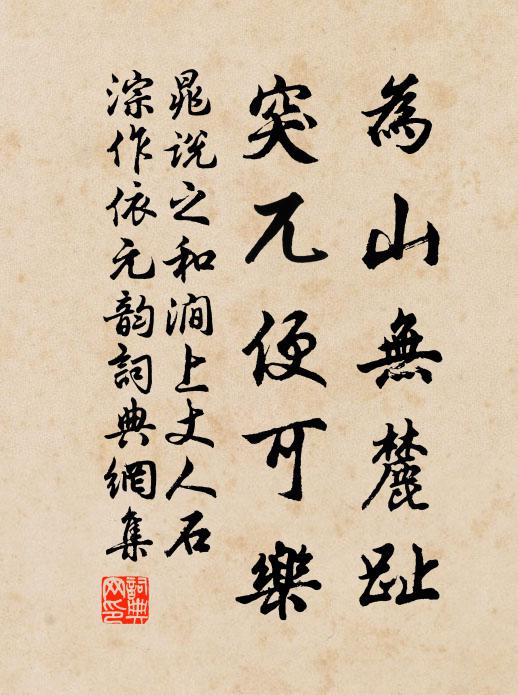 為山無麓趾
突兀便可樂
晁說之和澗上丈人石
淙作依元韵詞典網集
詞典網印